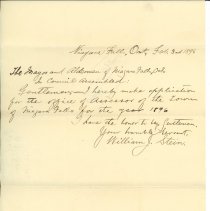 Niagara Falls, Ont, Feb. 3rd 1896
The Mayor and Aldermen of Niagara Falls, Ont.
In Council Assembled:
Gentlemen, I hereby make application
for the office of Assessor of the Town
of Niagara Falls for the year 1896
I have the honor to be, Gentlemen,
Your humble Servant,
William J. Stein